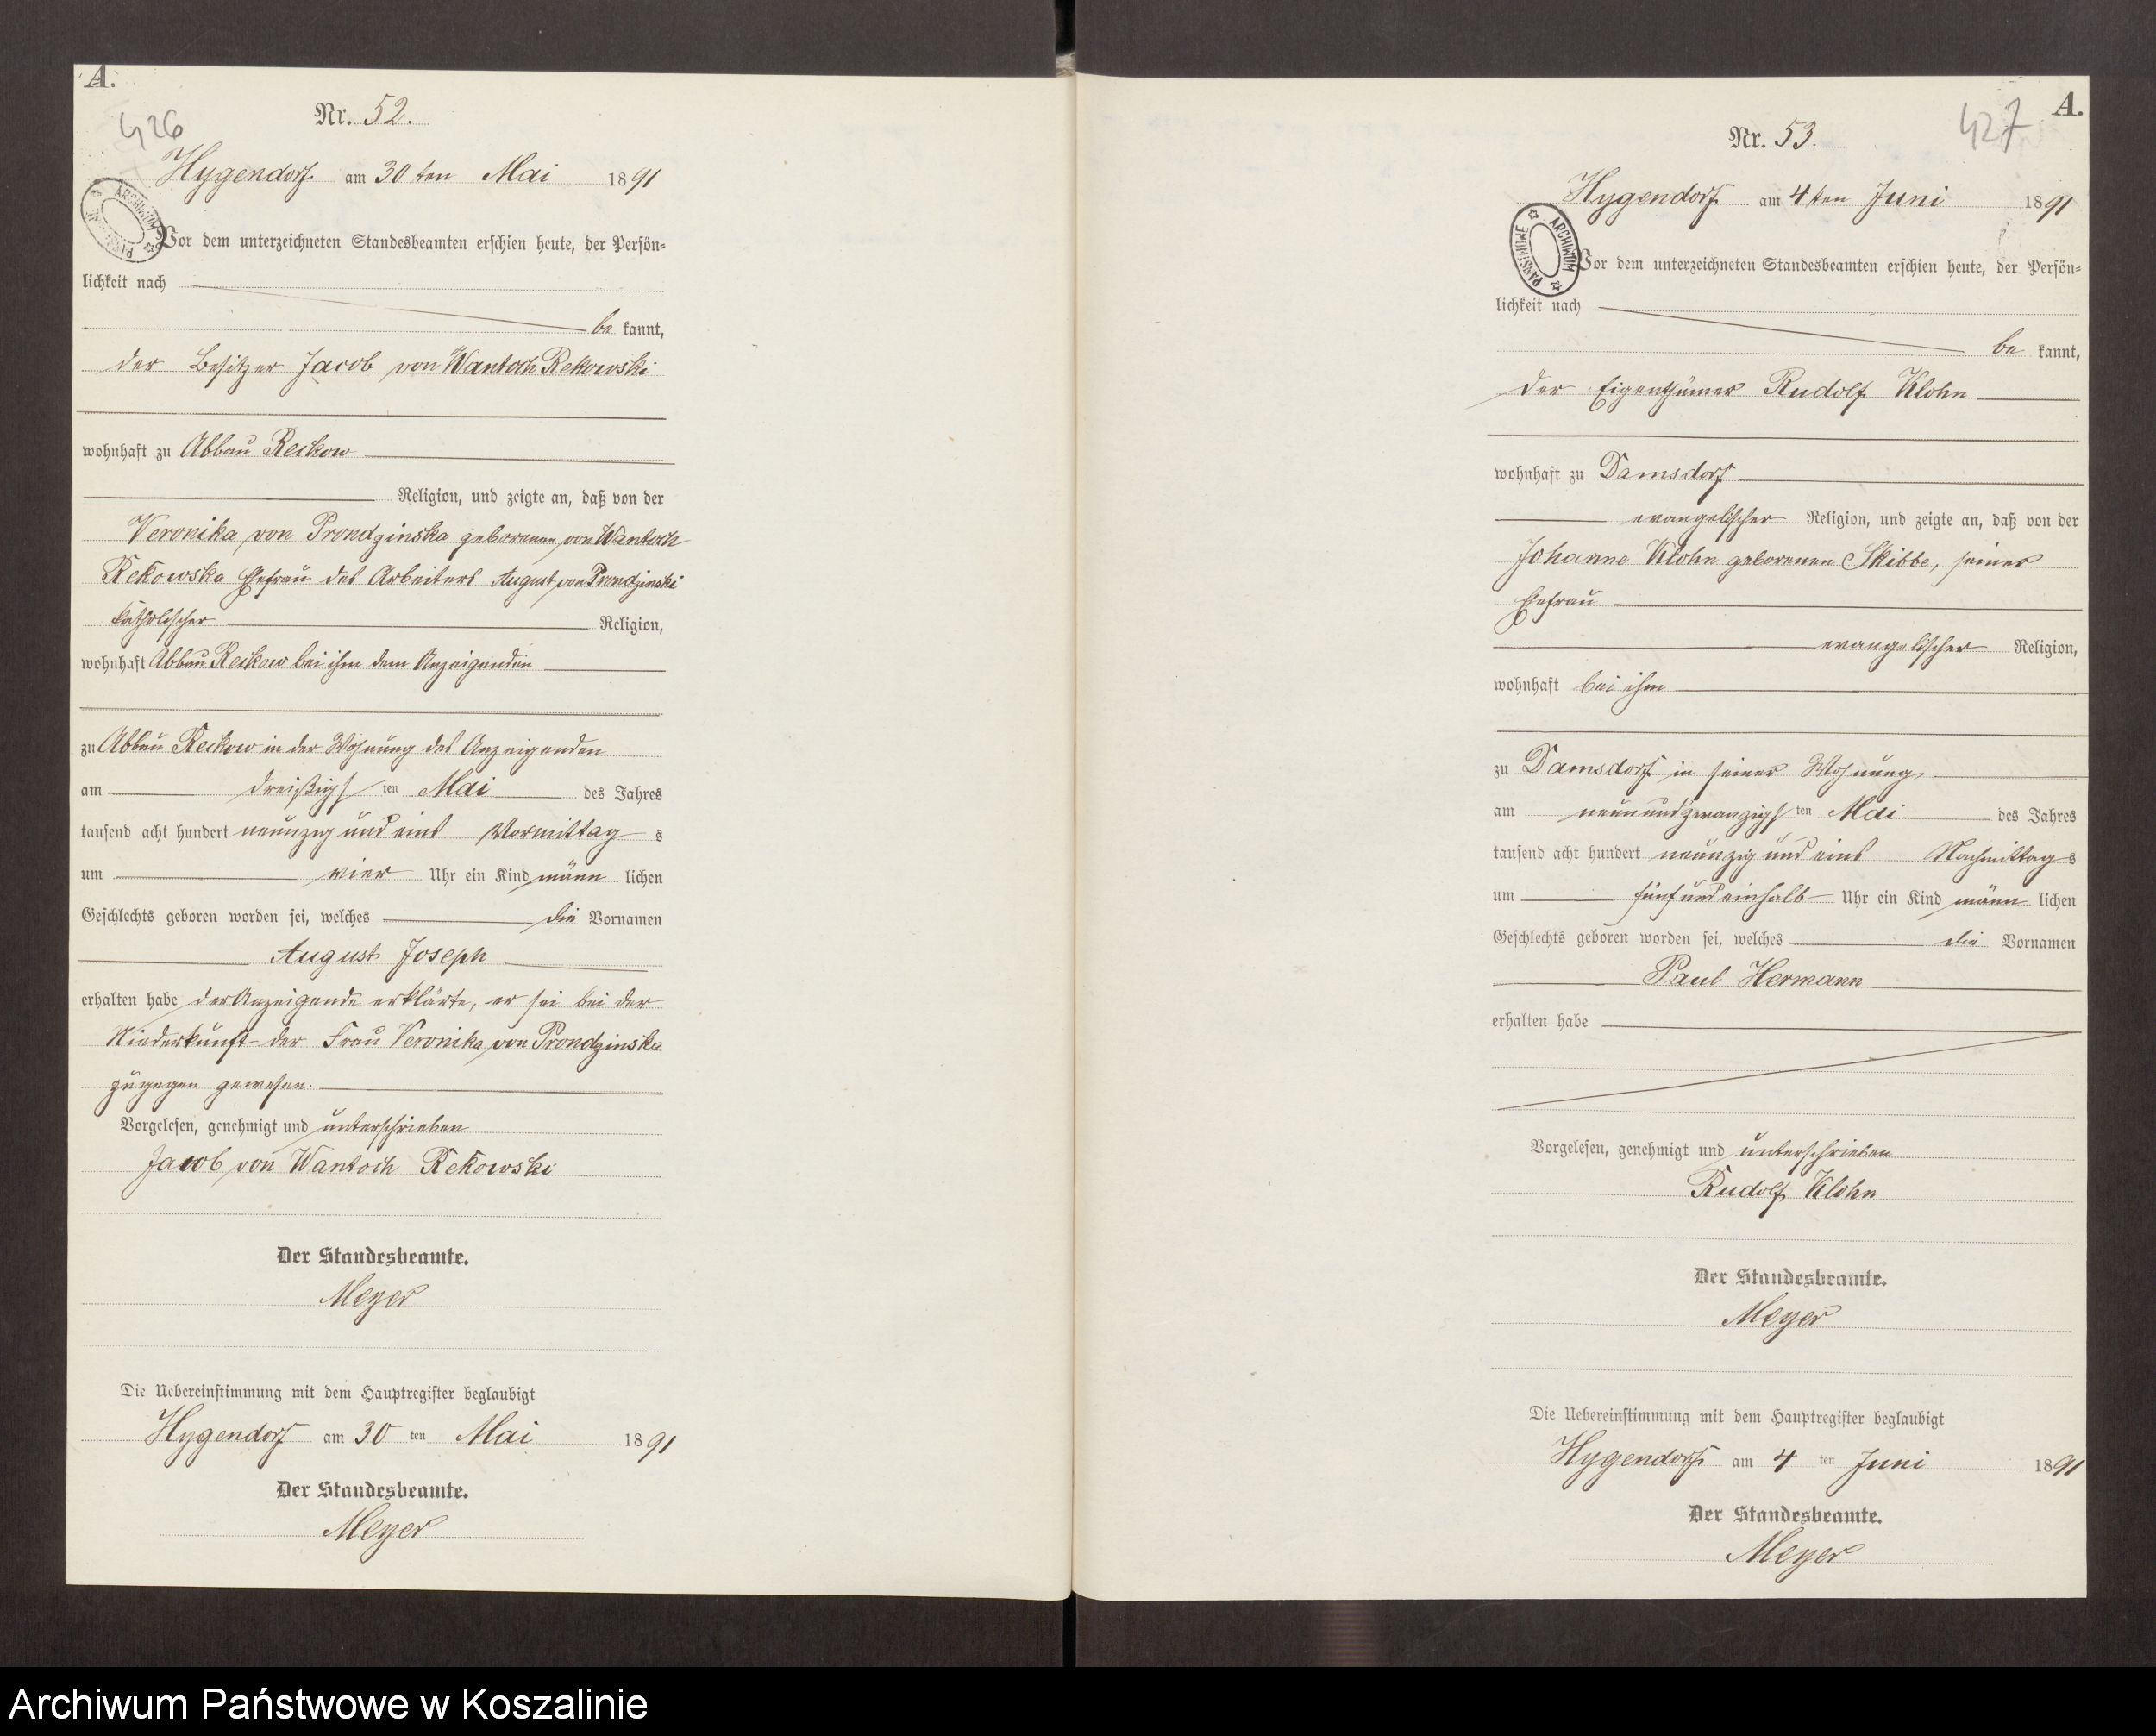 A.
426
Nr. 52.
Hygendorf am 30 ten Mai 1891
ARCHIWUM PAŃSTWOWE
Vor dem unterzeichneten Standesbeamten erschien heute, der Persön-
lichkeit nach
be kannt,
der Besitzer Jacob von Wantoch Rekowski
wohnhaft zu Abbau Reckow
Religion, und zeigte an, daß von der
Veronika von Prondzinska geborenen von Wantoch
Rekowska Ehefrau des Arbeiters August von Prondzinski
katholischer Religion,
wohnhaft Abbau Reckow bei ihm dem Anzeigenden
zu Abbau Reckow in der Wohnung des Anzeigenden
am dreißigs ten Mai des Jahres
tausend acht hundert neunzig und eins Vormittag s
um vier Uhr ein Kind männ lichen
Geschlechts geboren worden sei, welches die Vornamen
August Joseph
erhalten habe der Anzeigende erklärte, er sei bei der
Niederkunft der Frau Veronika von Prondzinska
zugegen gewesen.
Vorgelesen, genehmigt und unterschrieben
Jacob von Wantoch Rekowski
Der Standesbeamte.
Meyer
Die Uebereinstimmung mit dem Hauptregister beglaubigt
Hygendorf am 30 ten Mai 1891
Der Standesbeamte.
Meyer
A.
427
Nr. 53.
Hygendorf am 4 ten Juni 1891
ARCHIWUM PAŃSTWOWE
Vor dem unterzeichneten Standesbeamten erschien heute, der Persön-
lichkeit nach
be kannt,
der Eigenthümer Rudolf Klohn
wohnhaft zu Damsdorf
evangelischer Religion, und zeigte an, daß von der
Johanne Klohn geborenen Skibbe, seiner
Ehefrau
evangelischer Religion,
wohnhaft bei ihm
zu Damsdorf in seiner Wohnung
am neunundzwanzigs ten Mai des Jahres
tausend acht hundert neunzig und eins Nachmittag s
um fünf und einhalb Uhr ein Kind männ lichen
Geschlechts geboren worden sei, welches die Vornamen
Paul Hermann
erhalten habe
Vorgelesen, genehmigt und unterschrieben
Rudolf Klohn
Der Standesbeamte.
Meyer
Die Uebereinstimmung mit dem Hauptregister beglaubigt
Hygendorf am 4 ten Juni 1891
Der Standesbeamte.
Meyer
Archiwum Państwowe w Koszalinie